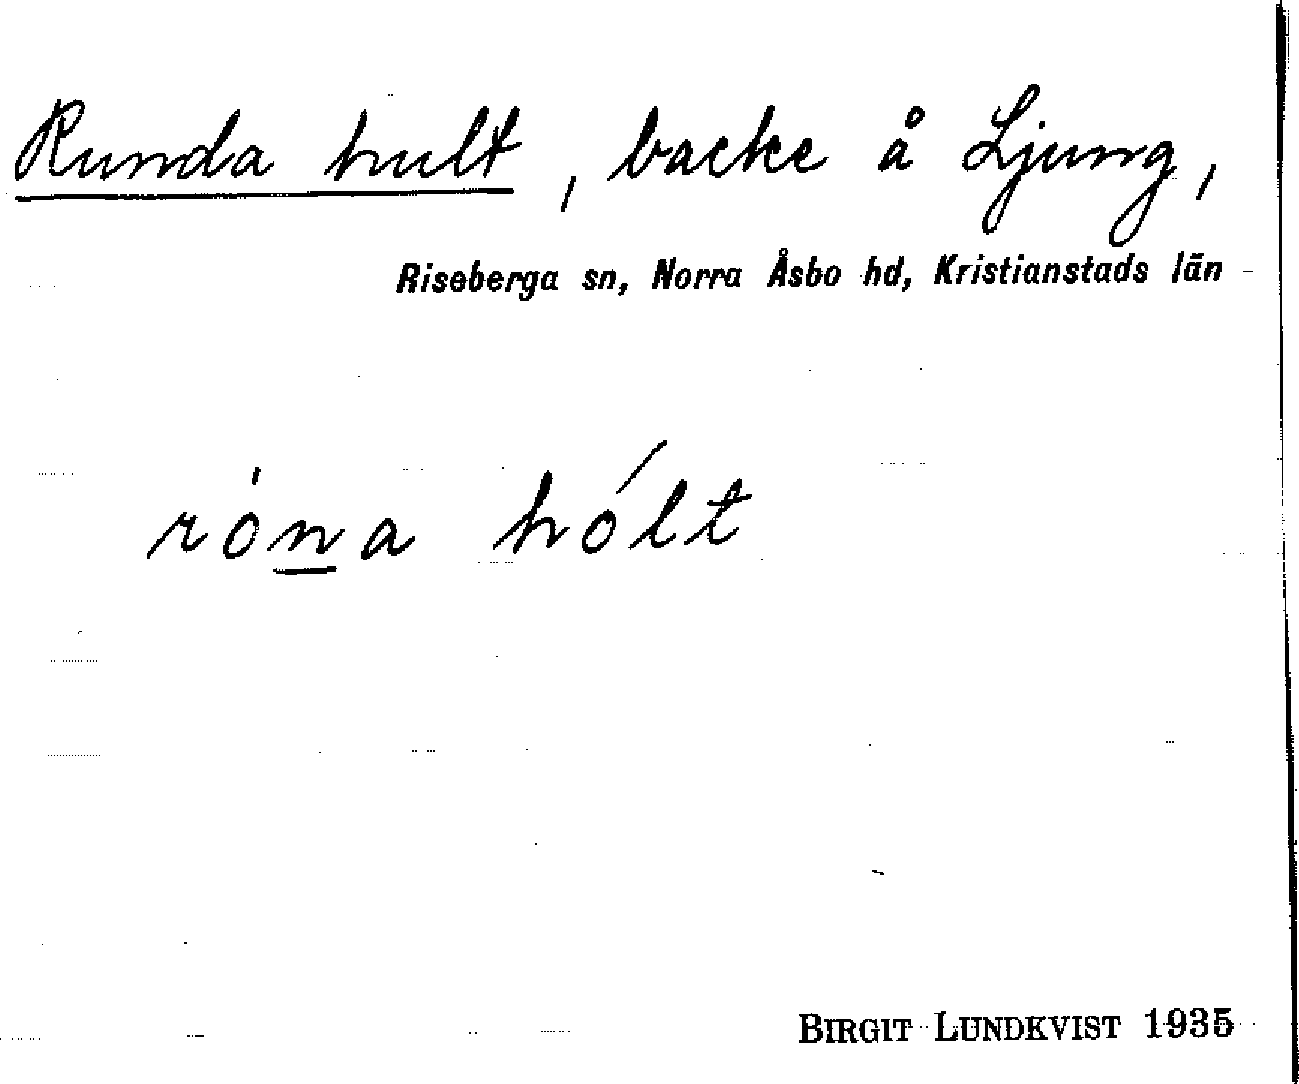 Runda hult, backe å Ljung,
Riseberga sn, Norra Åsbo hd, Kristianstads län
róna hólt
BIRGIT LUNDKVIST 1935